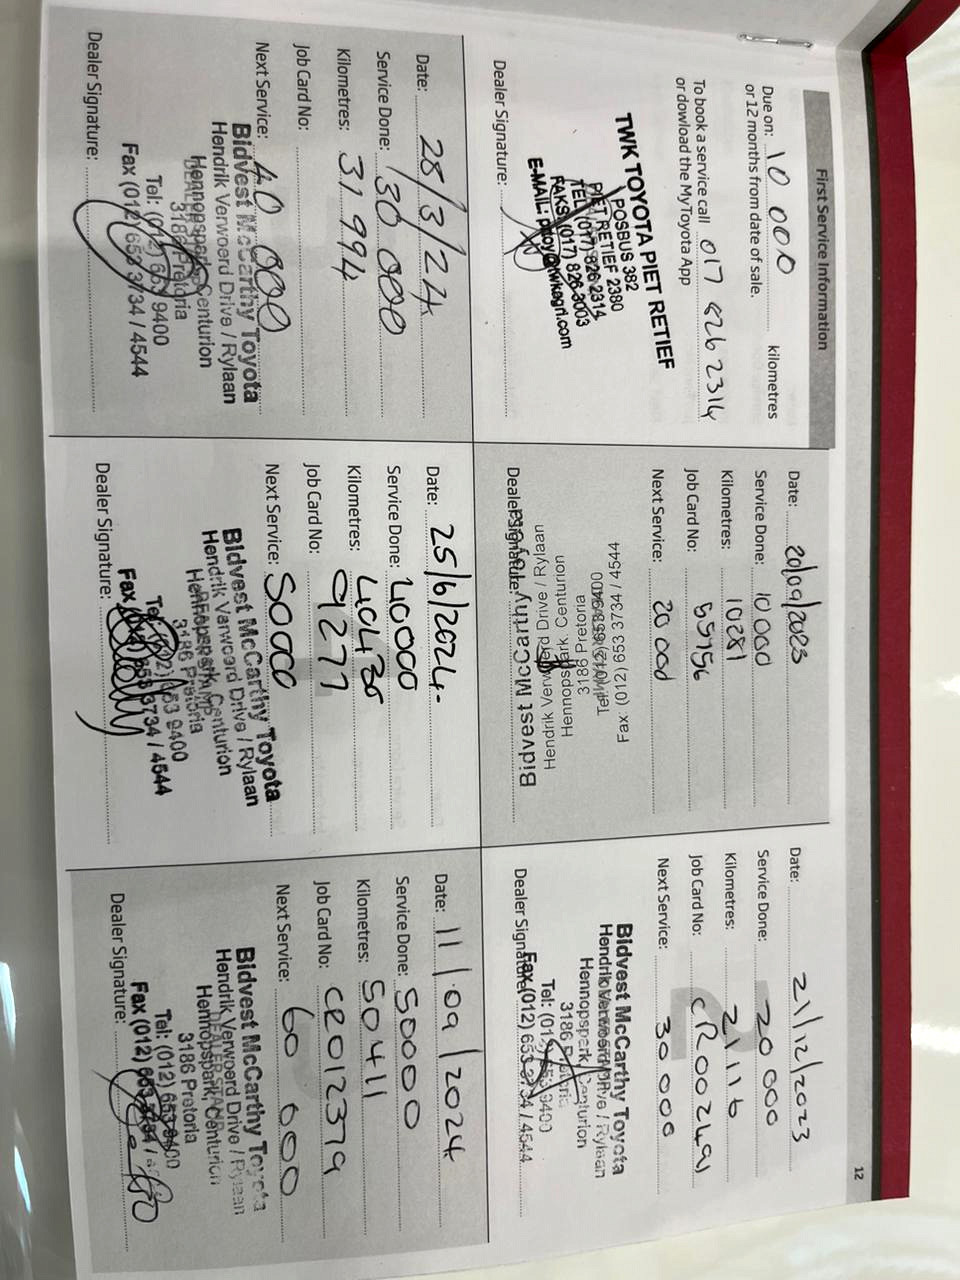 12
First Service Information
Due on: 10 000 kilometres
or 12 months from date of sale.
To book a service call 017 826 2314
or dowload the MyToyota App
TWK TOYOTA PIET RETIEF
POSBUS 382
PIET RETIEF 2380
TEL (017) 826 2314
FAKS (017) 826 3003
Dealer Signature:
Date: 20/09/2023
Service Done: 10 000
Kilometres: 10281
Job Card No: 55756
Next Service: 20 000
Fax: (012) 653 3734 / 4544
3186 Pretoria
Hennopspark, Centurion
Hendrik Verwoerd Drive / Rylaan
Bidvest McCarthy Toyota
Dealer Signature:
Date: 21/12/2023
Service Done: 20 000
Kilometres: 21116
Job Card No: CR00249
Next Service: 30 000
Bidvest McCarthy Toyota
Hendrik Verwoerd Drive / Rylaan
Hennopspark, Centurion
3186 Pretoria
Tel: (012) 653 9400
Fax (012) 653 3734 / 4544
Dealer Signature:
Date: 28/3/24
Service Done: 30 000
Kilometres: 31994
Job Card No:
Next Service: 40 000
Bidvest McCarthy Toyota
Hendrik Verwoerd Drive / Rylaan
Hennopspark, Centurion
3186 Pretoria
Tel: (012) 653 9400
Fax (012) 653 3734 / 4544
Dealer Signature:
Date: 25/6/2024
Service Done: 40000
Kilometres: 40430
Job Card No: 9277
Next Service: 50000
Bidvest McCarthy Toyota
Hendrik Verwoerd Drive / Rylaan
Hennopspark, Centurion
3186 Pretoria
Tel: (012) 653 9400
Fax (012) 653 3734 / 4544
Dealer Signature:
Date: 11/09/2024
Service Done: 50000
Kilometres: 50411
Job Card No: CR012379
Next Service: 60 000
Bidvest McCarthy Toyota
Hendrik Verwoerd Drive / Rylaan
Hennopspark, Centurion
3186 Pretoria
Tel: (012) 653 9400
Fax (012) 653 3734 /
Dealer Signature: